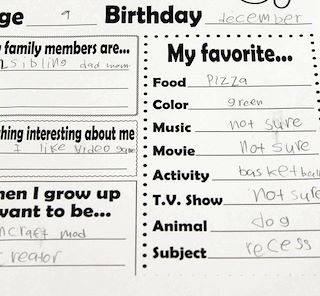 ge 9 Birthday december
family members are...
sibling dad mom
hing interesting about me
I like Video game
hen I grow up
vant to be...
ncraft mod
creator
My favorite...
Food Pizza
Color green
Music not sure
Movie Not sure
Activity basketball
T.V. Show Not sure
Animal dog
Subject recess